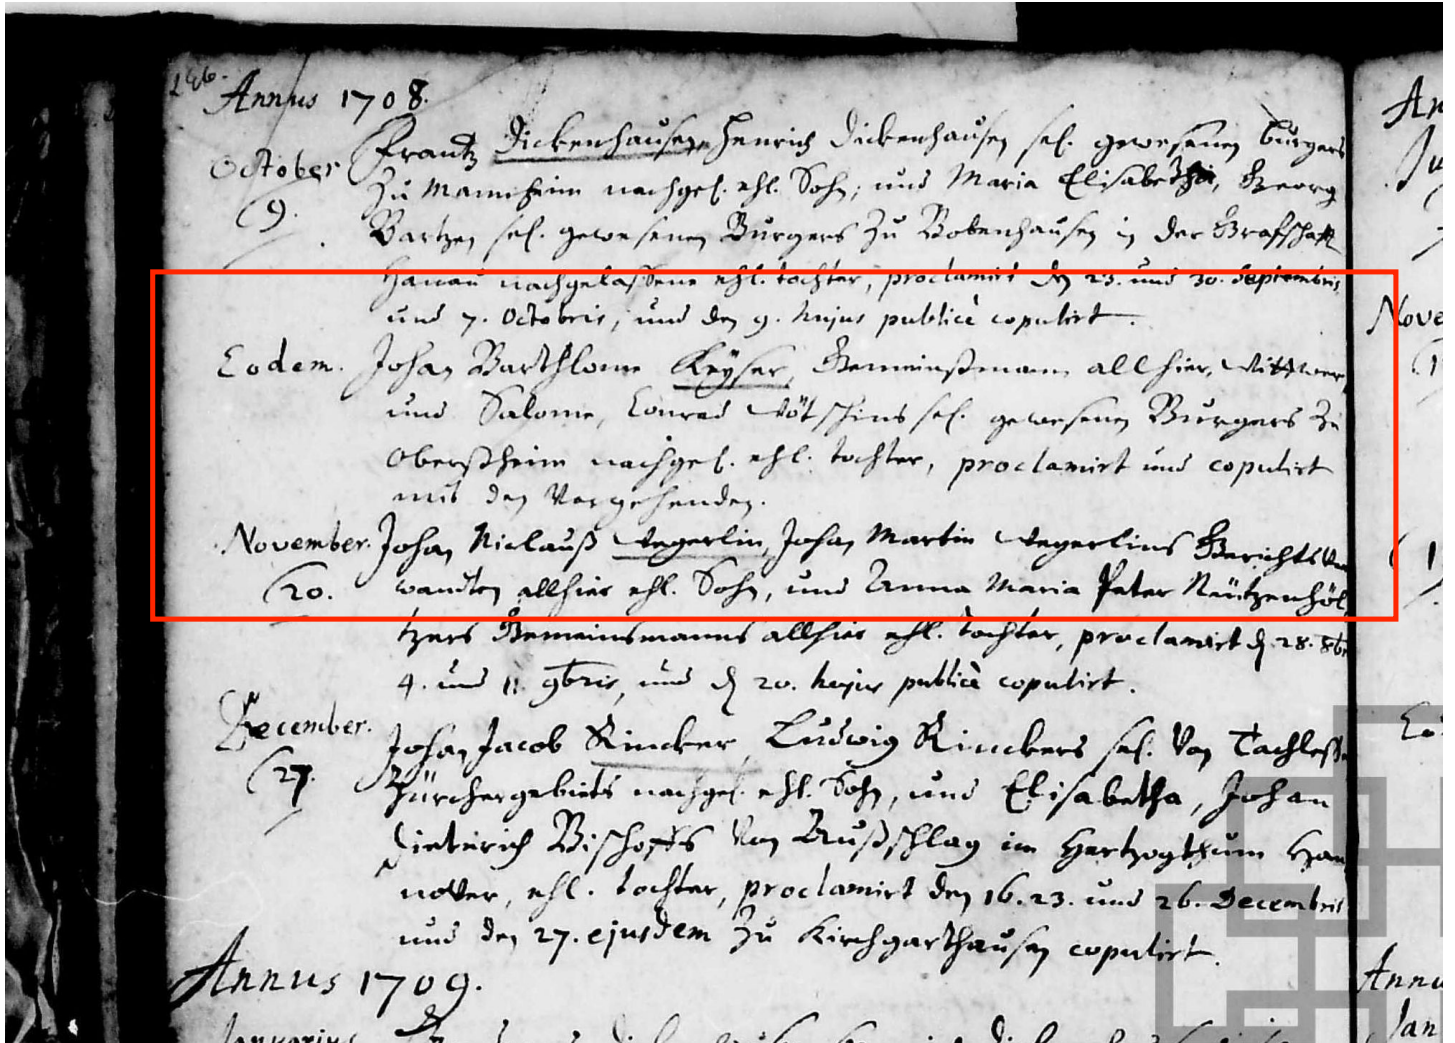 Annus 1708.
October Frantz Dickenhausen, Henrich Dickenhausen sel. gewesenen burgers
9. Zu Mannheim nachgel. ehl. Sohn, und Maria Elisabetha, Georg
Bartzen sel. gewesenen Burgers Zu Bobenhausen in der Grafschafft
Hanau nachgelassene ehl. tochter, proclamirt den 23. und 30. Septembris,
und 7. Octobris, und den 9. hujus publicè copulirt.
Eodem. Johan Barthlome Keÿser, Gemeinßmann allhier, Wittwer,
und Salome, Conrad sel. gewesenen Burgers Zu
Oberßheim nachgel. ehl. tochter, proclamirt und copulirt
mit den Vorgehenden.
November. Johan Niclauß Wegerlin, Johan Martin Wegerlins Gerichtsver
20. wandten allhier ehl. Sohn, und Anna Maria Peter Neützenhöl
tzers Gemeinsmanns allhier ehl. tochter, proclamirt d. 28. 8br
4. und 11. 9bris, und d. 20. hujus publicè copulirt.
December. Johan Jacob Rincker, Ludwig Rinckers sel. Von
27. Zürchergebiets nachgel. ehl. Sohn, und Elisabetha, Johan
Dieterich Bischoffs Von Außschlag im Hertzogthum Han
nover, ehl. tochter, proclamirt den 16. 23. und 26. Decembris
und den 27. ejusdem Zu Kirchgarthausen copulirt.
Annus 1709.
Januarius